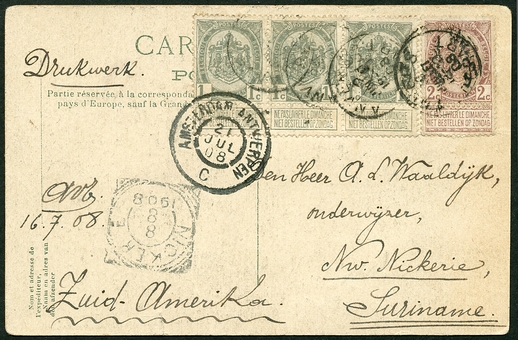 CAR
Drukwerk.
PO
Partie réservée à la corresponda
pays d'Europe, sauf la Grand
1c 1c
2c
NE PAS LIVRER LE DIMANCHE
NIET BESTELLEN OP ZONDAG
NE PAS LIVRER LE DIMANCHE
NIET BESTELLEN OP ZONDAG
NE PAS LIVRER LE DIMANCHE
NIET BESTELLEN OP ZONDAG
AMSTERDAM-ANTWERPEN
21
JUL
08
C
Den Heer A. L. Waaldijk,
onderwijzer,
Nw. Nickerie,
Suriname.
16.7.08.
NICKERIE
8
8
1908
Nom et adresse de
l'expéditeur.
Naam en adres van
den afzender
Zuid-Amerika.